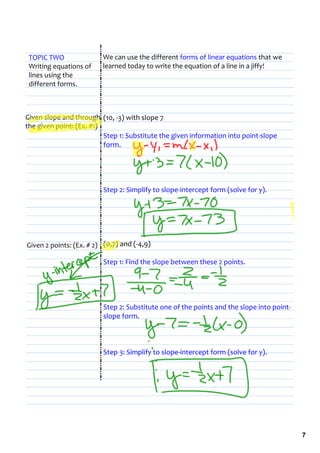 TOPIC TWO
Writing equations of
lines using the
different forms.
We can use the different forms of linear equations that we
learned today to write the equation of a line in a jiffy!
Given slope and through
the given point: (Ex. #1)
(10, -3) with slope 7
Step 1: Substitute the given information into point-slope
form.
y-y₁=m(x-x₁)
y+3=7(x-10)
Step 2: Simplify to slope-intercept form (solve for y).
y+3=7x-70
y=7x-73
Given 2 points: (Ex. # 2)
(0,7) and (-4,9)
Step 1: Find the slope between these 2 points.
9-7/-4-0 = 2/-4 = -1/2
y-intercept
y=-1/2x+7
Step 2: Substitute one of the points and the slope into point-
slope form.
y-7=-1/2(x-0)
Step 3: Simplify to slope-intercept form (solve for y).
y=-1/2x+7
7